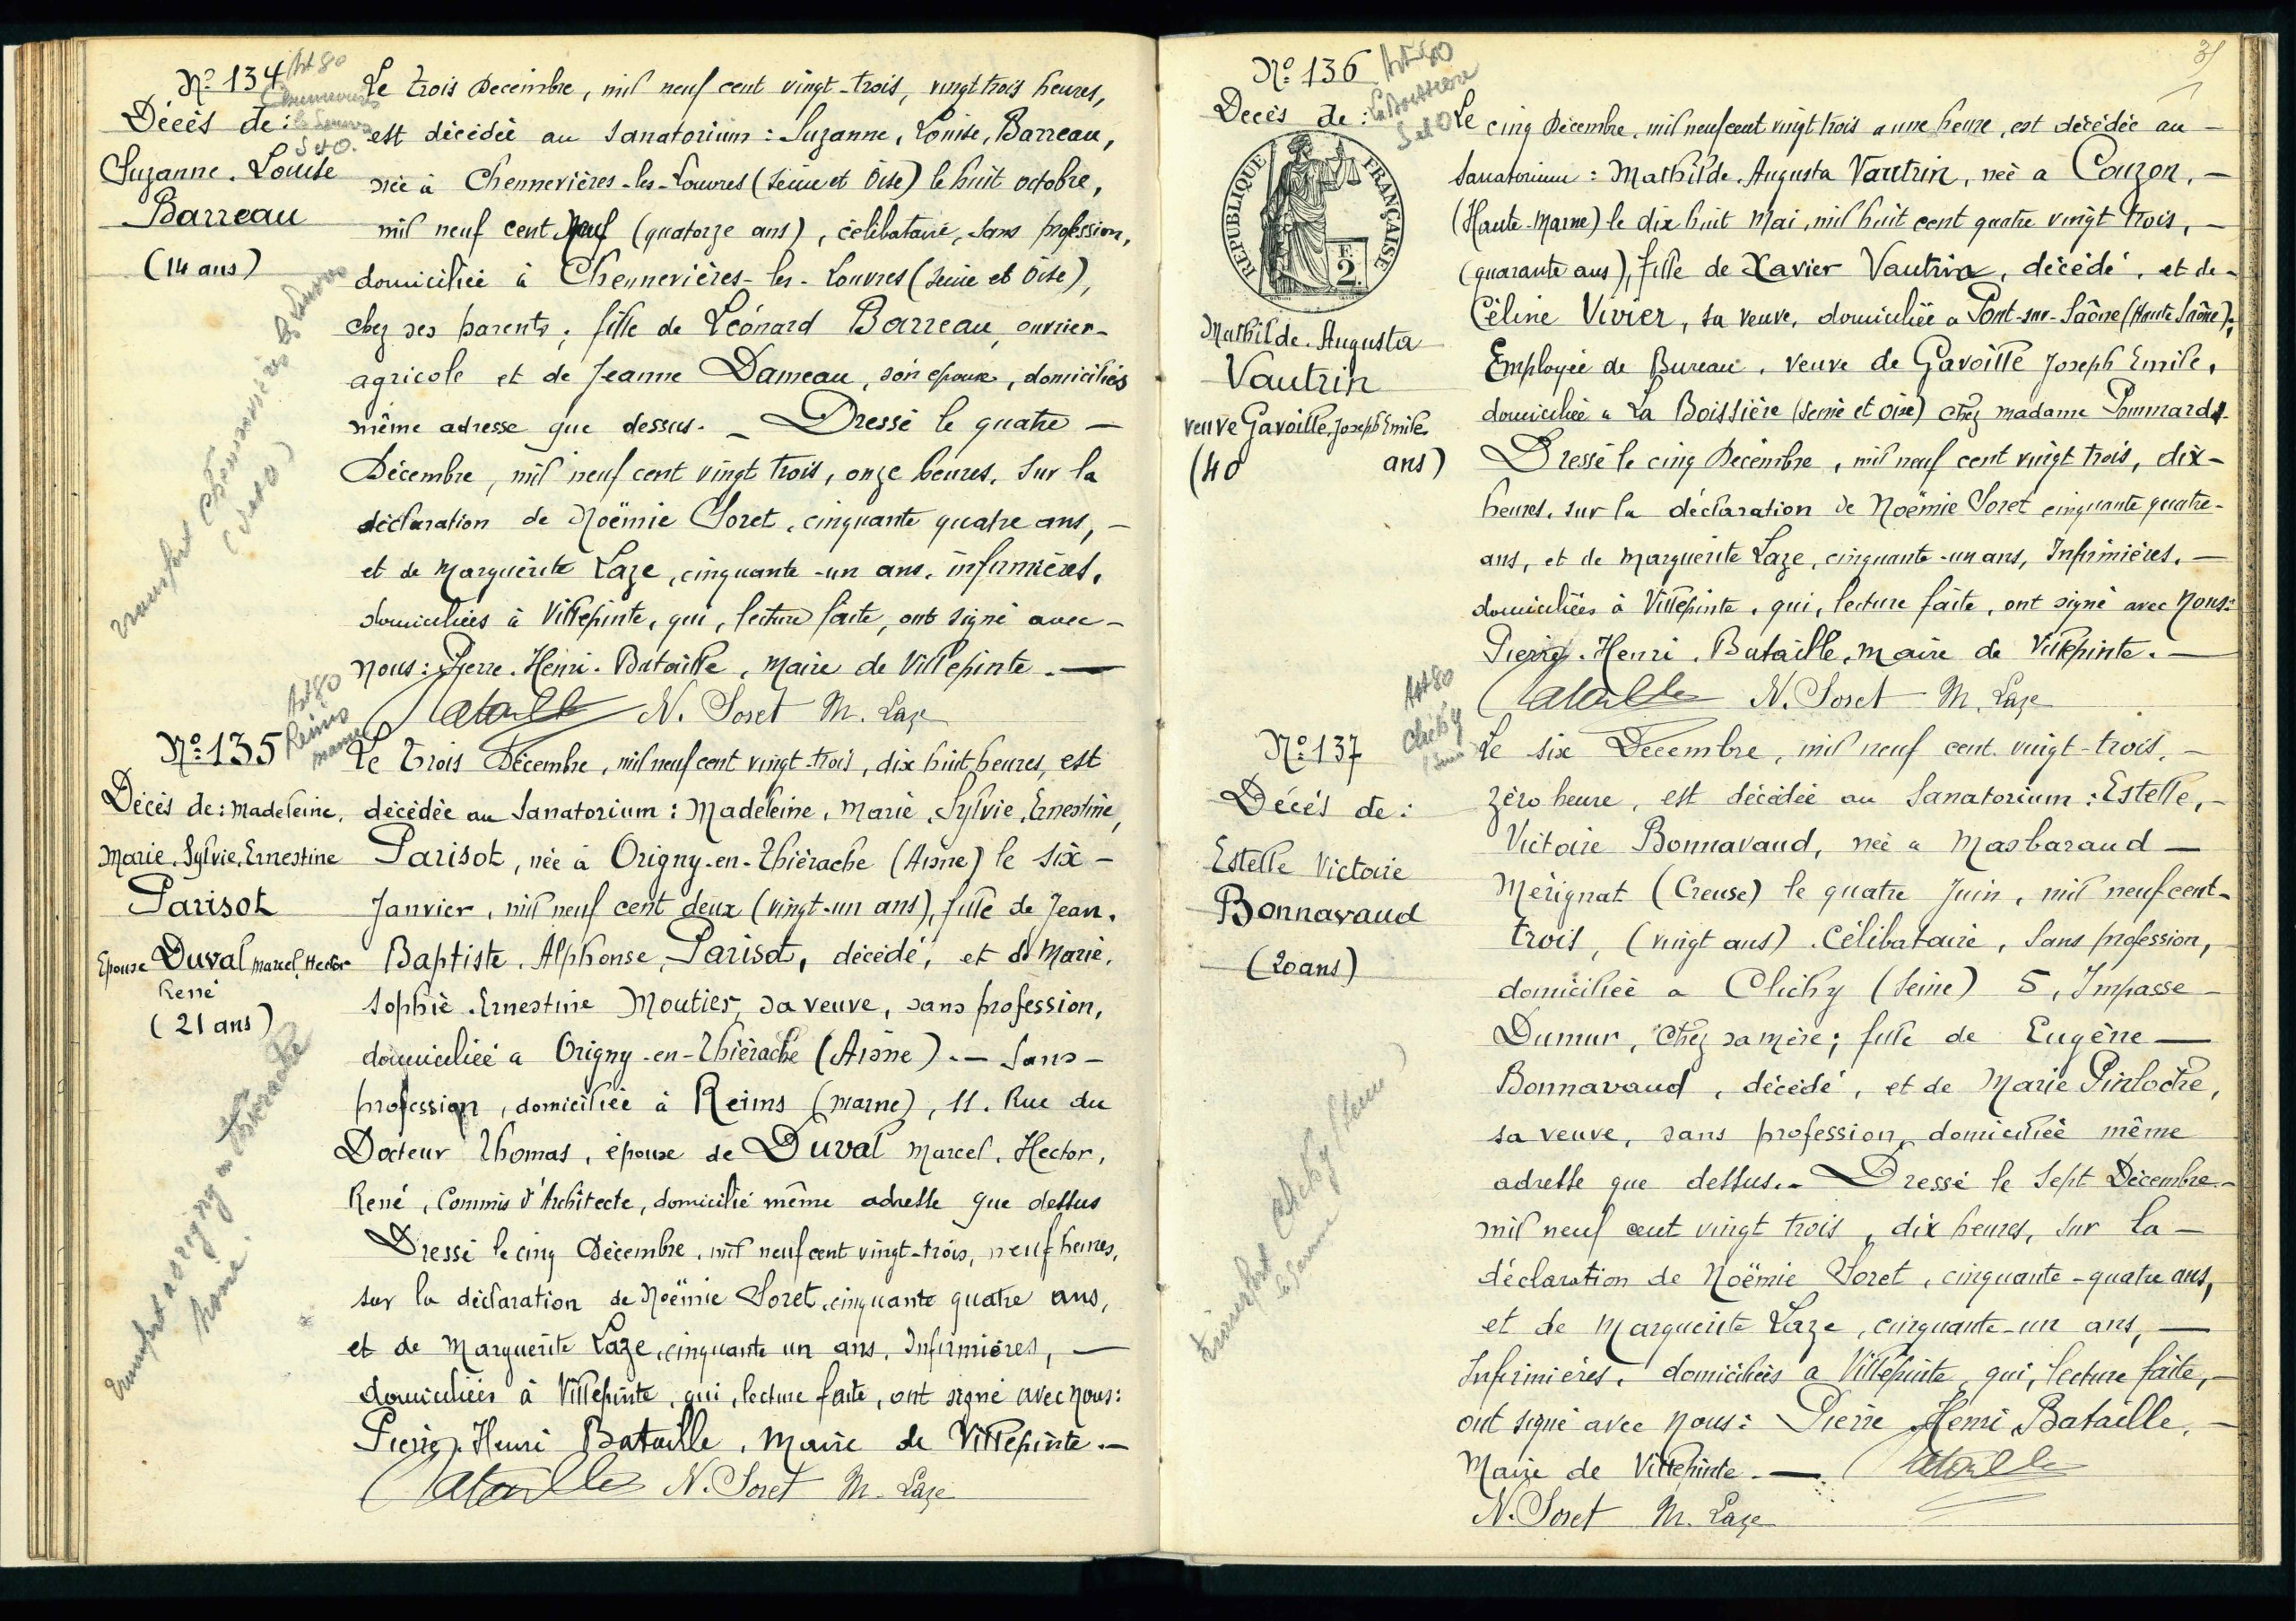 Nº 134
Art 80
Décès de :
Suzanne. Louise
Barreau
(14 ans)
Le trois Decembre, mil neuf cent vingt-trois, vingt trois heures,
est décédée au Sanatorium : Suzanne, Louise, Barreau,
née à Chennevières-les-Louvres (Seine et Oise) le huit octobre,
mil neuf cent neuf (quatorze ans), célibataire, sans profession,
domiciliée à Chennevières-les-Louvres (Seine et Oise),
chez ses parents ; fille de Léonard Barreau, ouvrier-
agricole et de Jeanne Dameau, son epouse, domiciliés
même adresse que dessus. _ Dressé le quatre —
Décembre, mil neuf cent vingt trois, onze heures, sur la
déclaration de Noëmie Soret, cinquante quatre ans, —
et de Marguerite Laze, cinquante-un ans, infirmières,
domiciliées à Villepinte, qui, lecture faite, ont signé avec —
nous : Pierre. Henri. Bataille, Maire de Villepinte. —
Bataille N. Soret M. Laze
Nº 135
Art 80
Reims
Marne
Décès de : Madeleine,
Marie, Sylvie, Ernestine
Parisot
Epouse Duval Marcel, Hector
René
(21 ans)
Le trois Décembre, mil neuf cent vingt-trois, dix huit heures, est
décédée au Sanatorium : Madeleine, Marie, Sylvie, Ernestine,
Parisot, née à Origny-en-Thiérache (Aisne) le six —
Janvier, mil neuf cent deux (vingt-un ans), fille de Jean,
Baptiste, Alphonse, Parisot, décédé, et de Marie,
Sophie. Ernestine Moutier, sa veuve, sans profession,
domiciliée a Origny-en-Thiérache (Aisne). — Sans —
profession, domiciliée à Reims (Marne), 11. Rue du
Docteur Thomas, épouse de Duval Marcel, Hector,
René, Commis d'Architecte, domicilié même adresse que dessus
Dressé le cinq Décembre, mil neuf cent vingt-trois, neuf heures,
sur la déclaration de Noëmie Soret, cinquante quatre ans,
et de Marguerite Laze, cinquante un ans, Infirmières, —
domiciliées à Villepinte, qui, lecture faite, ont signé avec nous :
Pierre. Henri Bataille, Maire de Villepinte. —
Bataille N. Soret M. Laze
transport Chennevières les Louvres
(S et O)
transport a origny en Thiérache
Nº 136
Art 80
La Boissière
S et O
Decès de :
RÉPUBLIQUE FRANÇAISE
F. 2.
Mathilde. Augusta
Vautrin
veuve Gavoille, Joseph Emile
(40 ans)
Le cinq Décembre, mil neuf cent vingt trois a une heure, est décédée au —
Sanatorium : Mathilde. Augusta Vautrin, née a Couzon, —
(Haute-Marne) le dix huit Mai, mil huit cent quatre vingt trois, —
(quarante ans), fille de Xavier Vautrin, décédé, et de —
Céline Vivier, sa veuve, domiciliée a Pont-sur-Saône (Haute Saône);
Employée de Bureau, veuve de Gavoille Joseph Emile,
domiciliée a La Boissière (Seine et Oise) chez madame Pommard.
Dressé le cinq Décembre, mil neuf cent vingt trois, dix —
heures, sur la déclaration de Noëmie Soret cinquante quatre —
ans, et de Marguerite Laze, cinquante-un ans, Infirmières, —
domiciliées à Villepinte, qui, lecture faite, ont signé avec Nous :
Pierre. Henri. Bataille, Maire de Villepinte. —
Bataille N. Soret M. Laze
Nº 137
Art 80
Clichy
Décés de :
Estelle Victoire
Bonnavaud
(20 ans)
Le six Décembre, mil neuf cent vingt-trois, —
zéro heure, est décédée au Sanatorium : Estelle, —
Victoire Bonnavaud, née a Masbaraud —
Mérignat (Creuse) le quatre Juin, mil neuf cent —
trois, (vingt ans). Célibataire, sans profession,
domiciliée a Clichy (Seine) 5, Impasse —
Dumur, chez sa mère ; fille de Eugène —
Bonnavaud, décédé, et de Marie Pinloche,
sa veuve, sans profession, domiciliée même
adresse que dessus. — Dressé le Sept Décembre —
mil neuf cent vingt trois, dix heures, sur la —
déclaration de Noëmie Soret, cinquante-quatre ans,
et de Marguerite Laze, cinquante-un ans, —
Infirmières, domiciliées a Villepinte, qui, lecture faite, —
ont signé avec nous : Pierre Henri Bataille, —
Maire de Villepinte. — Bataille
N. Soret M. Laze
transport Clichy (Seine)